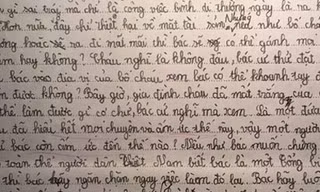 gì sai trái, mà chỉ là công việc bình dị thường ngày là ra k
Hơn nữa, đây chỉ thiệt hại về mặt tài sản, Nhưng nếu như bố chá
hoặc sẽ ra đi mãi mãi thì bác sĩ có thể gánh ma
am hay không? Cháu nghĩ là không đâu, bác cứ thử đặt
bác vào địa vị của bố cháu xem bác có thể khoanh tay
được không? Bây giờ, gia đình cháu đã mất trắng của
thể làm được gì cơ chứ, bác cứ nghĩ mà xem. Là một đứa
đã hiểu hết mọi chuyện và căm ức thế này, vậy một người
bác còn căm ức đến thế nào? Nếu như bác muốn chứng
toàn thể người dân Việt Nam biết bác là một bông
thì bác hãy ngăn chặn ngay việc làm đó lại. Bác hãy luô